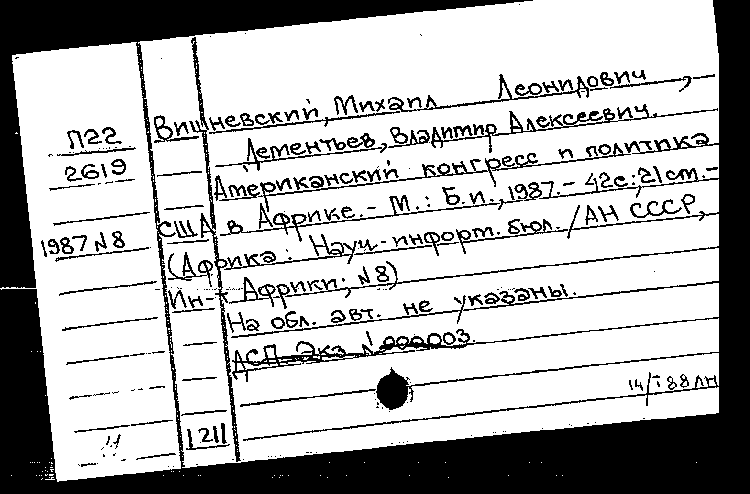 Вишневский, Михаил Леонидович,
П22
Дементьев, Владимир Алексеевич.
2619
Американский конгресс и политика
США в Африке. - М.: Б.и., 1987. - 42с; 21 см. -
1987 N8
(Африка: Науч.-информ. бюл. / АН СССР,
Ин-т Африки; N8)
На обл. авт. не указаны.
ДСП Экз N 000003
14/I 88 ЛН
1211